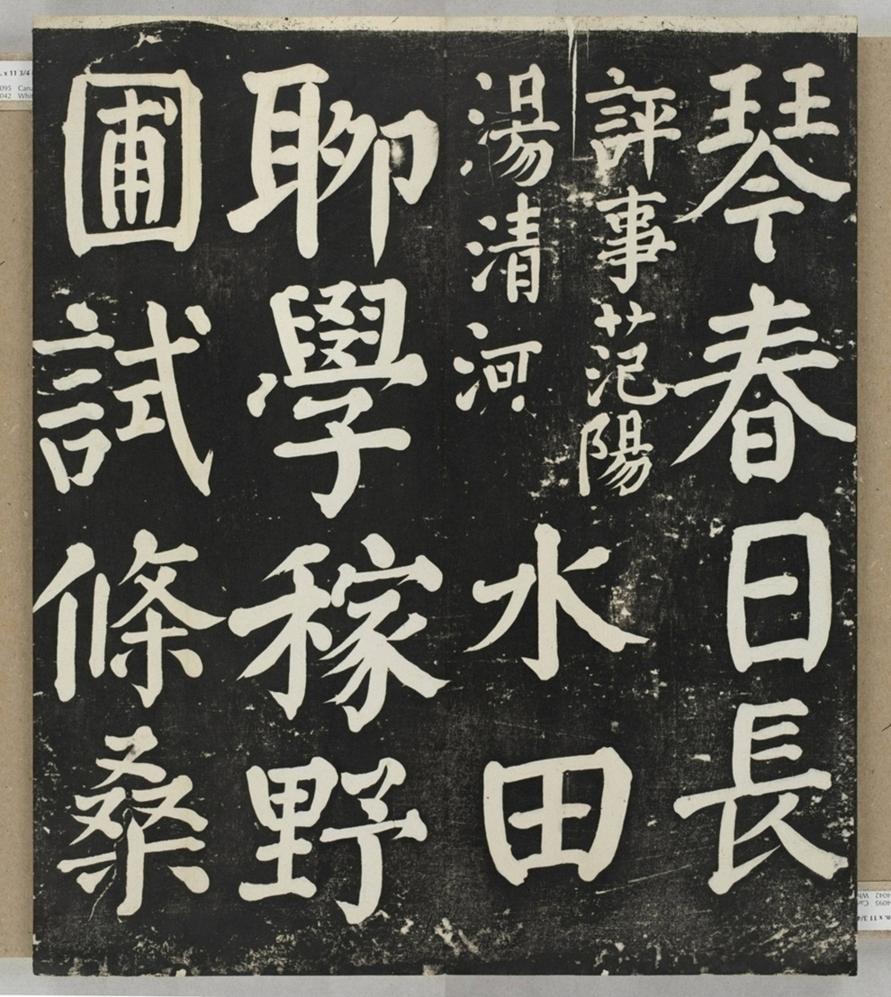 琴春日長
評事范陽
湯清河
水田
聊學稼野
圃試條桑
x 11 3/4